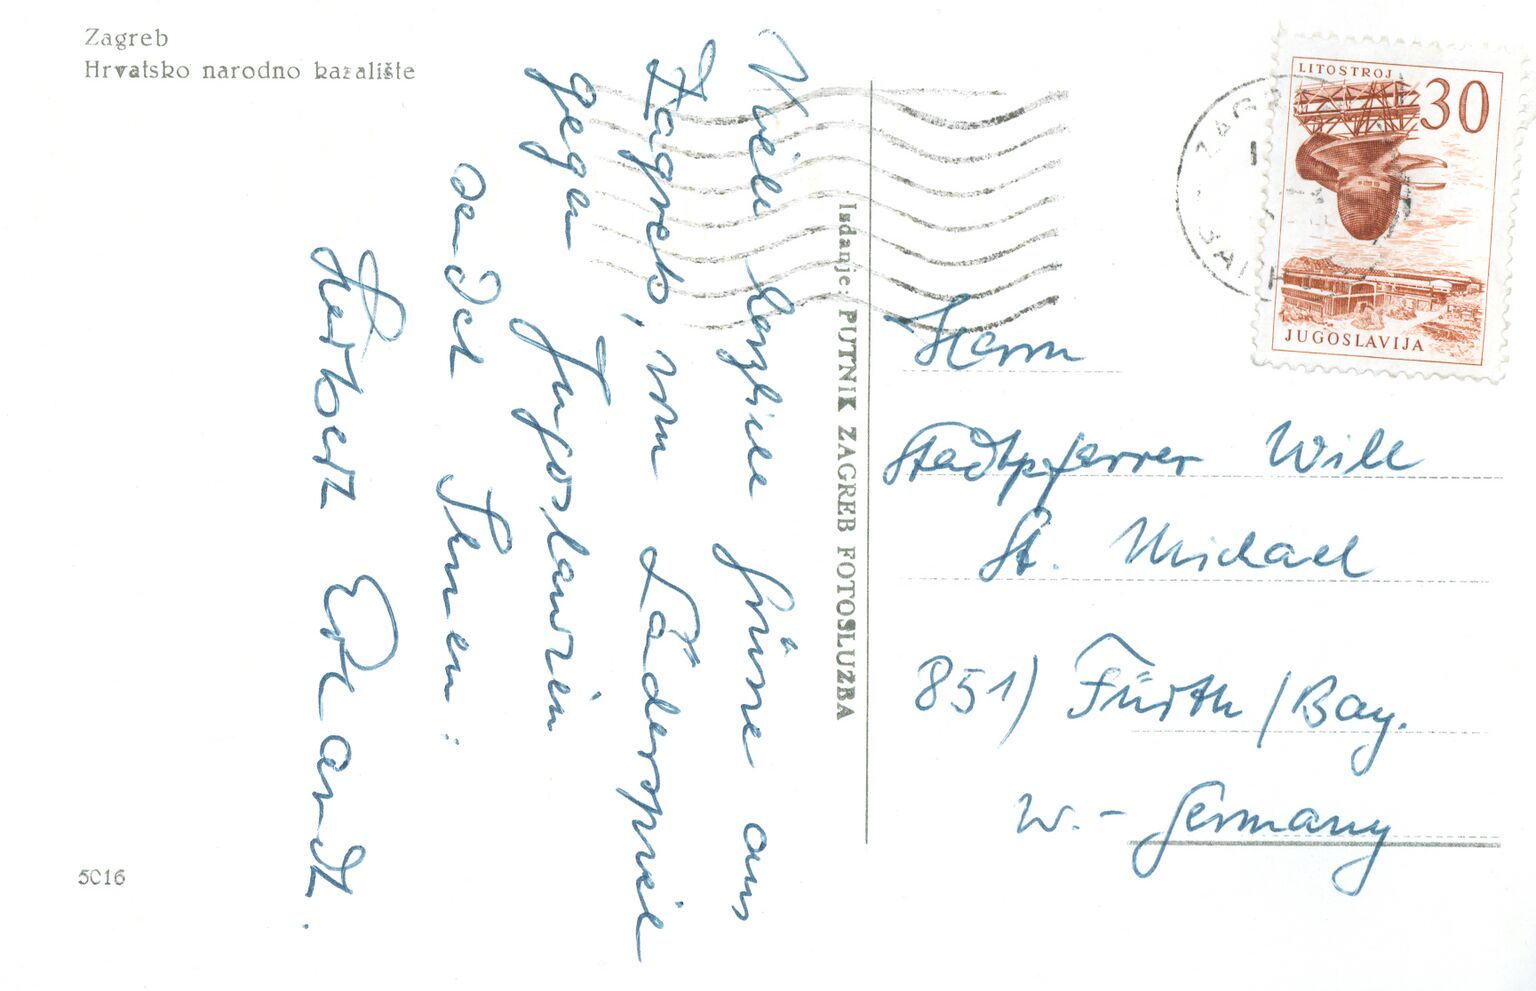 Zagreb
Hrvatsko narodno kazalište
Viele herzliche Grüsse aus
Zagreb, vom Länderspiel
gegen Jugoslawien
sendet Ihnen:
Herbert Erhardt.
5016
Isdanje: PUTNIK ZAGREB FOTOSLUZBA
LITOSTROJ
30
JUGOSLAVIJA
ZAGREB
Herrn
Stadtpfarrer Will
St. Michael
851) Fürth/Bay.
W.- Germany